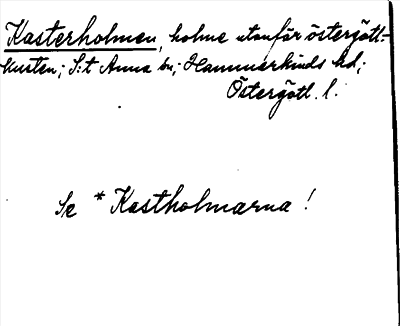 Kasterholmen, holme utanför östergötl.-
kusten; S:t Anna sn; Hammarkinds hd;
Östergötl. l.
Se *Kastholmarna!